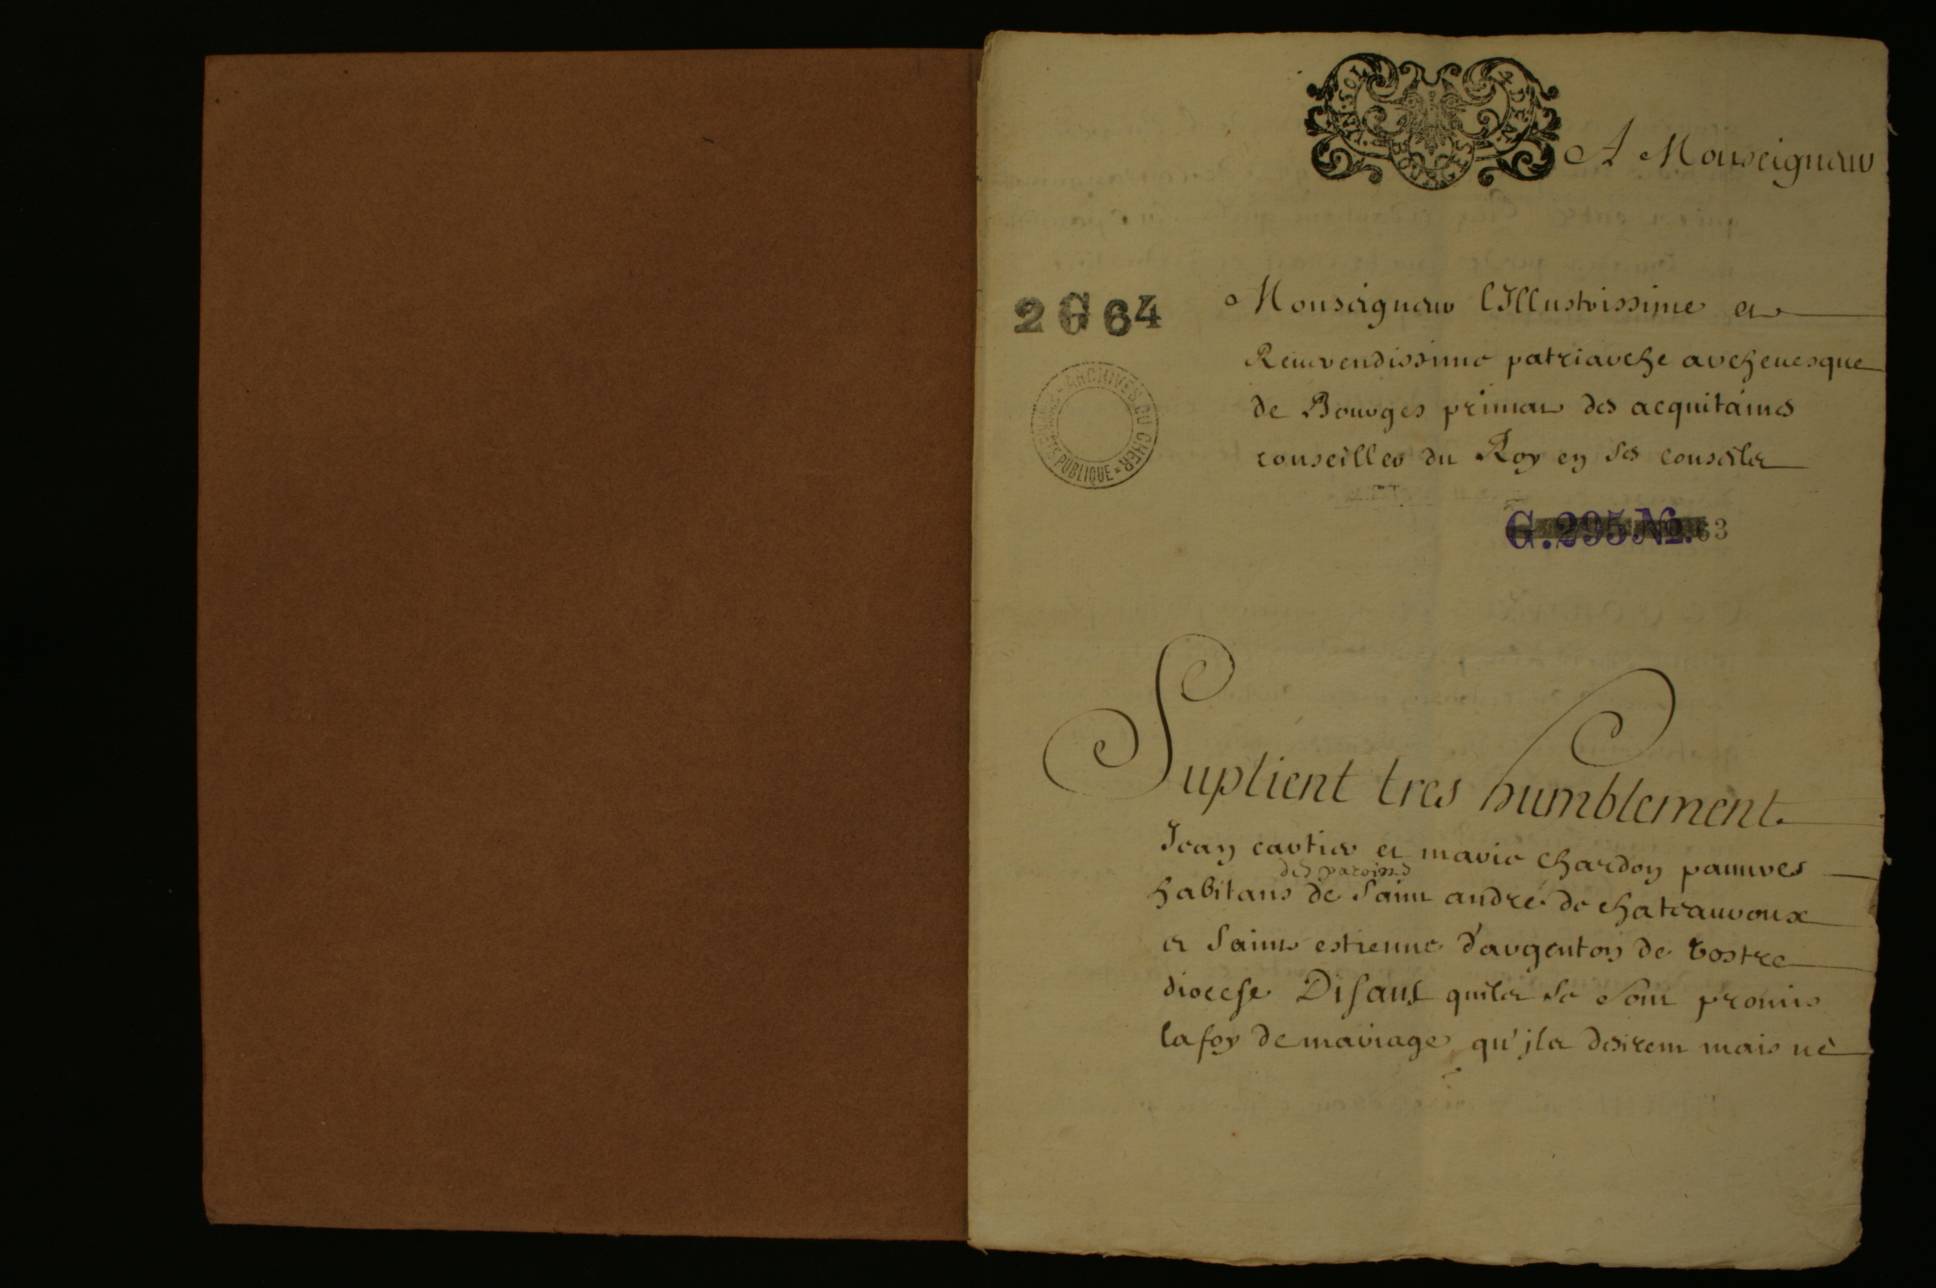 VN. SOL
4 DEN.
BOURGES
A Monseigneur
2 G 64
Monseigneur l'Illustrissime et
Reuerendissime patriarche archeuesque
de Bourges primat des acquitaines
conseiller du Roy en ses conseils
ARCHIVES DU CHER
PUBLIQUE
G. 295 No. 63
Suplient tres humblement.
Jean cartier et marie chardon pauures
des paroisses
habitans de saint andre de chateauroux
et saint estienne d'argenton de vostre
diocese Disant quils se sont promis
la foy de mariage qu'jls desirent mais nè